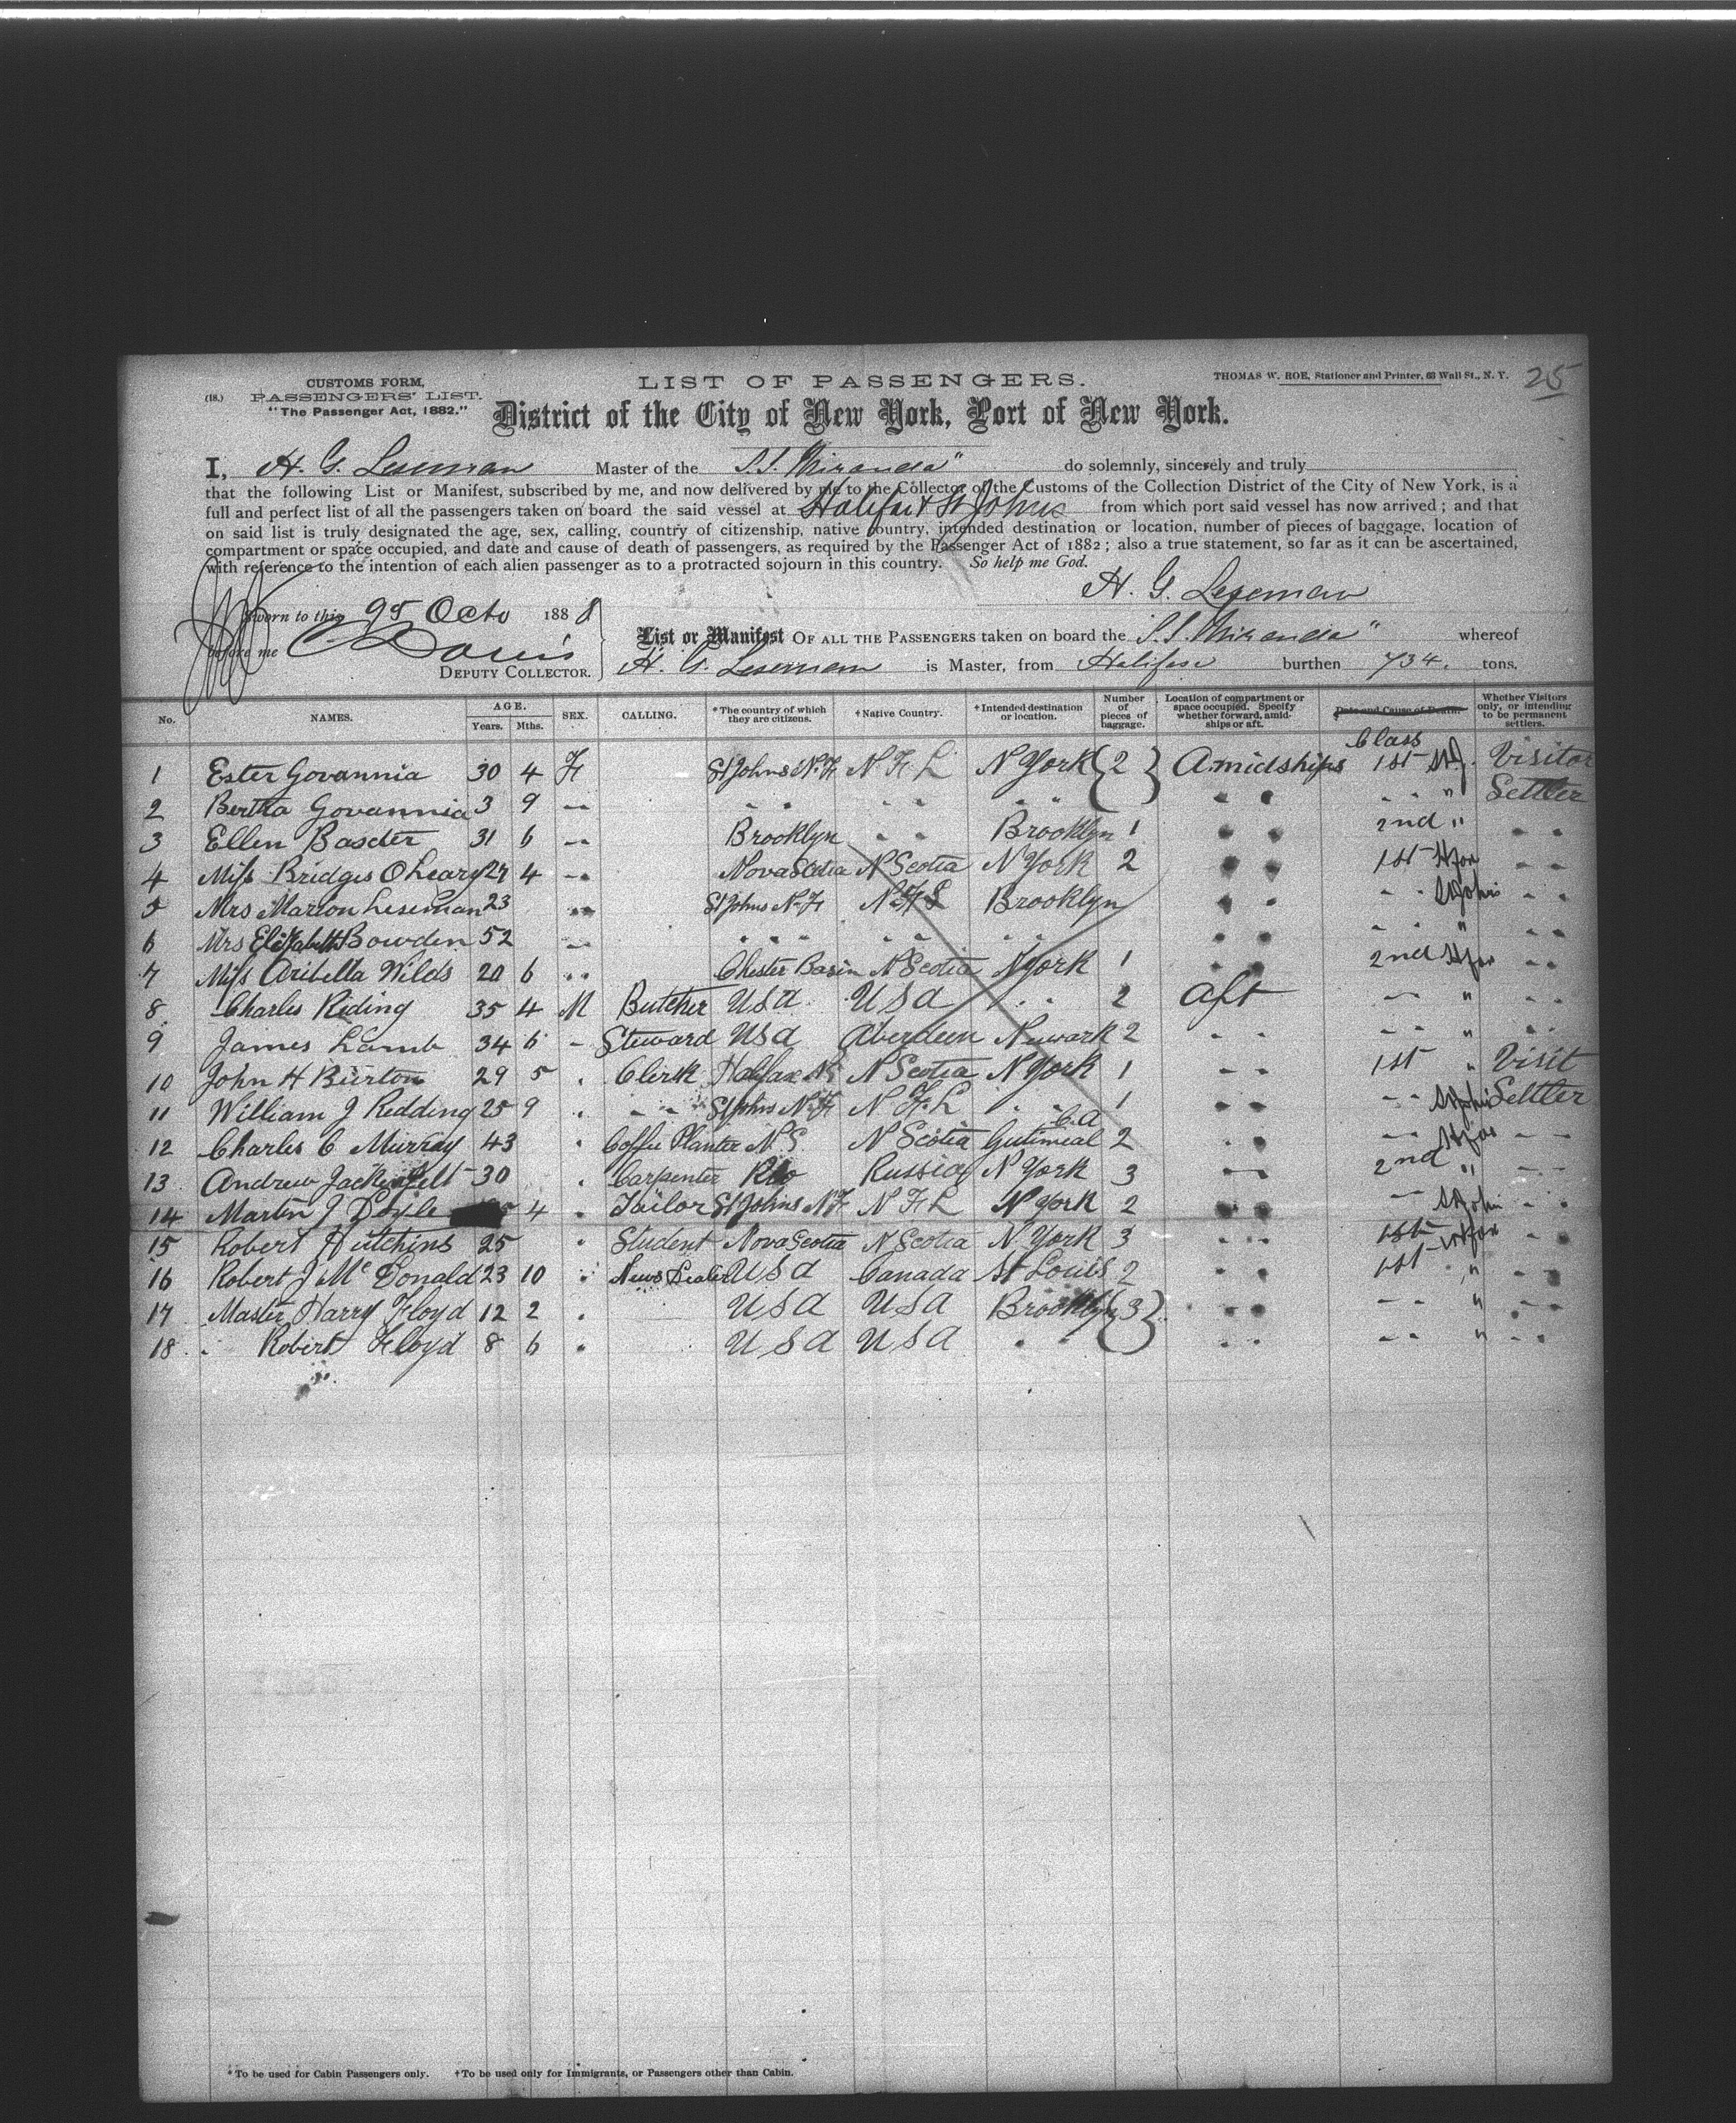 CUSTOMS FORM,
(18.) PASSENGERS' LIST.
"The Passenger Act, 1882."
LIST OF PASSENGERS.
THOMAS W. ROE, Stationer and Printer, 63 Wall St., N. Y.
25
District of the City of New York, Port of New York.
I, H. G. Leseman Master of the S.S. Miranda" do solemnly, sincerely and truly
that the following List or Manifest, subscribed by me, and now delivered by me to the Collector of the Customs of the Collection District of the City of New York, is a
full and perfect list of all the passengers taken on board the said vessel at Halifax & St Johns from which port said vessel has now arrived; and that
on said list is truly designated the age, sex, calling, country of citizenship, native country, intended destination or location, number of pieces of baggage, location of
compartment or space occupied, and date and cause of death of passengers, as required by the Passenger Act of 1882; also a true statement, so far as it can be ascertained,
with reference to the intention of each alien passenger as to a protracted sojourn in this country. So help me God.
H. G. Leseman
Sworn to this 25 Octo 1888
before me
DEPUTY COLLECTOR.
List or Manifest OF ALL THE PASSENGERS taken on board the S.S. Miranda" whereof
H. G. Leseman is Master, from Halifax burthen 734. tons.
No. NAMES. AGE. Years. Mths. SEX. CALLING. *The country of which they are citizens. †Native Country. †Intended destination or location. Number of pieces of baggage. Location of compartment or space occupied. Specify whether forward, amidships or aft. Date and Cause of Death. Whether Visitors only, or intending to be permanent settlers.
Class
1 Ester Govannia 30 4 F St Johns N.F. N F L N York 2 Amidships 1st St J. Visitor
2 Bertha Govannia 3 9 " " " " " " " " " " " " Settler
3 Ellen Baxter 31 6 " Brooklyn " " Brooklyn 1 " " 2nd " " "
4 Miss Bridges O Leary 27 4 " Nova Scotia N Scotia N York 2 " " 1st Hfax " "
5 Mrs Marion Leseman 23 " St Johns N.F. N F L Brooklyn " " " " St Johns " "
6 Mrs Elizabeth Bowden 52 " " " " " " " " " " " " " "
7 Miss Aribella Wilds 20 6 " Chester Basin N Scotia N York 1 " " 2nd Hfax " "
8 Charles Riding 35 4 M Butcher U S a U S a " " 2 aft " " " "
9 James Lamb 34 6 " Steward U S a Aberdeen Newark 2 " " " " " "
10 John H Burton 29 5 " Clerk Halifax N S N Scotia N York 1 " " 1st " Visit
11 William J Redding 25 9 " " " St Johns N.F. N F L " " 1 " " " " St Johns Settler
12 Charles C Murray 43 " Coffee Planter N S. N Scotia C.A 2 " " " Hfax " "
13 Andrew 30 " Carpenter Russia N York 3 " " 2nd " " "
14 Martin J Doyle 4 " Tailor St Johns N F N F L N York 2 " " " St John " "
15 Robert Hutchins 25 " Student Nova Scotia N Scotia N York 3 " " 1st Hfax " "
16 Robert J McDonald 23 10 " News Dealer U S a Canada St Louis 2 " " 1st " " "
17 Master Harry Floyd 12 2 " U S a U S a Brooklyn 3 " " " " " " "
18 " Robert Floyd 8 6 " U S a U S a " " " " " " " " "
*To be used for Cabin Passengers only. †To be used only for Immigrants, or Passengers other than Cabin.